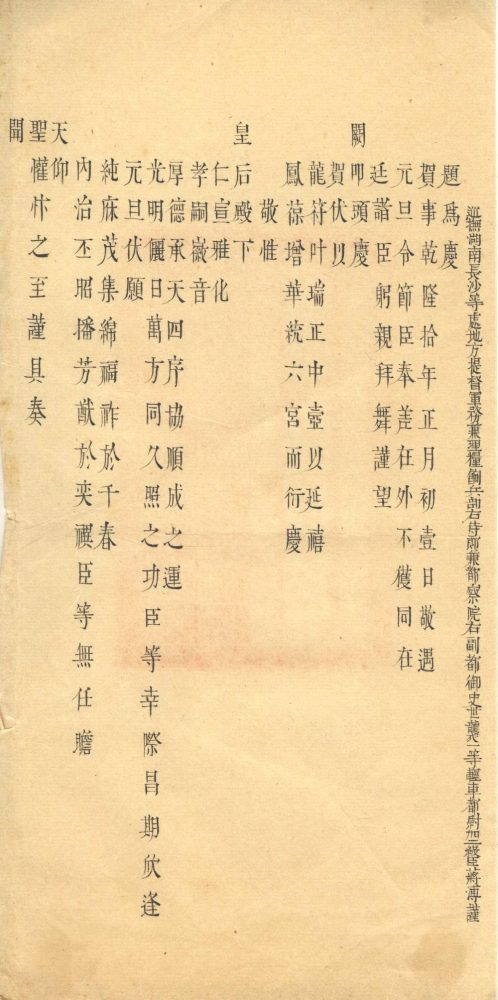 巡撫湖南長沙等處地方提督軍務兼理糧餉兵部右侍郎兼都察院右副都御史世襲一等輕車都尉加級臣蔣溥謹
題為慶
賀事乾隆拾年正月初壹日敬遇
元旦令節臣奉差在外不獲同在
廷諸臣躬親拜舞謹望
闕叩頭慶
賀伏以
龍符叶瑞正中壼以延禧
鳳葆增華統六宮而衍慶
敬惟
皇后殿下
仁宣雅化
孝嗣徽音
厚德承天四序協順成之運
光明儷日萬方同久照之功臣等幸際昌期欣逢
元旦伏願
純庥茂集綿福祚於千春
內治丕昭播芳猷於奕禩臣等無任瞻
天仰
聖懽忭之至謹具奏
聞